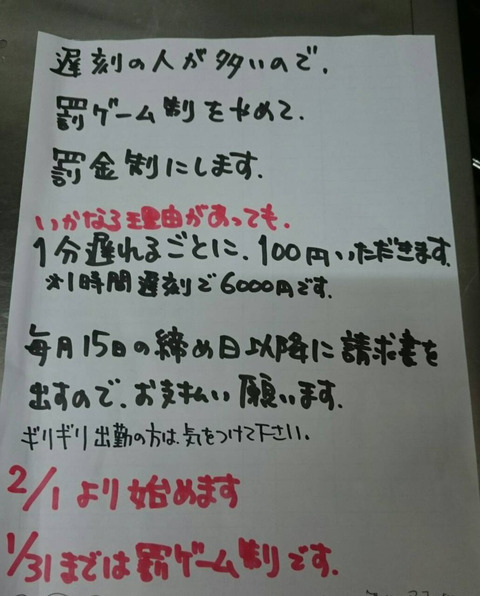 遅刻の人が多いので、
罰ゲーム制をやめて、
罰金制にします。
いかなる理由があっても、
1分遅れるごとに、100円いただきます。
※1時間遅刻で6000円です。
毎月15日の締め日以降に請求書を
出すので、お支払い願います。
ギリギリ出勤の方は気をつけて下さい。
2/1より始めます
1/31までは罰ゲーム制です。